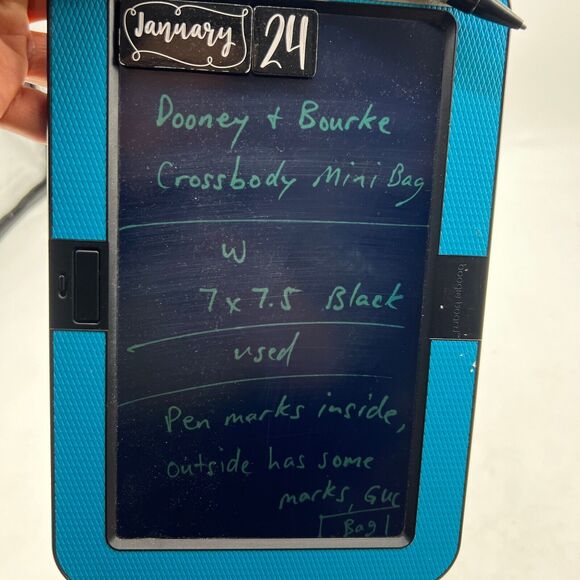 January 24
Dooney + Bourke
Crossbody Mini Bag
W
7 x 7.5 Black
used
Pen marks inside,
outside has some
marks, GUC
Bag
boogie board